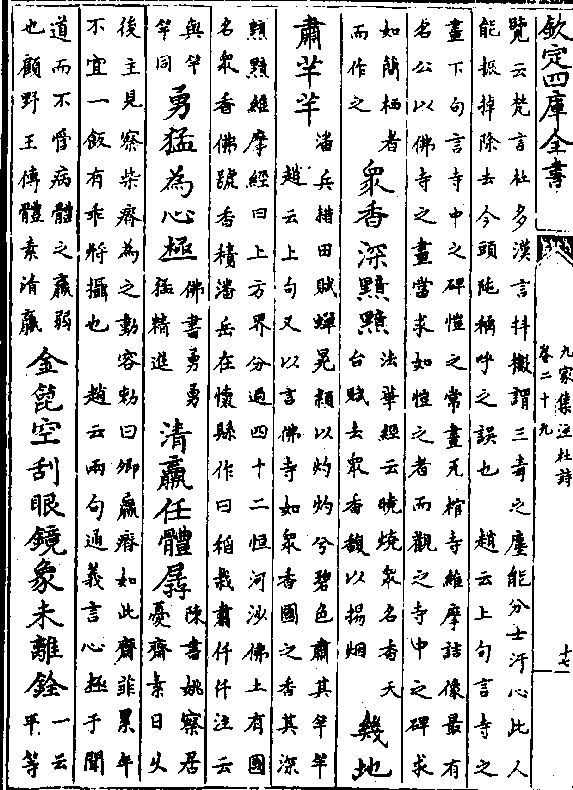 欽定四庫全書
九家集注杜詩
卷二十九
十七
覽云梵言杜多漢言抖擻謂三毒之塵能坌士汙心此人
能振掉除去今頭陁稱呼之誤也 趙云上句言寺之
畫下句言寺中之碑愷之常畫瓦棺寺維摩詰像最有
名公以佛寺之畫當求如愷之者而觀之寺中之碑求
如簡栖者
而作之
衆香深黯黯
法華經云曉燒衆名香天
台賦去衆香馥以揚烟
幾地
肅芊芊
潘兵藉田賦蟬冕頴以灼灼兮碧色肅其芊芊
趙云上句又以言佛寺如衆香國之香其深
黯黯維摩經曰上方界分過四十二恒河沙佛土有國
名衆香佛號香積潘岳在懷縣作曰稻栽肅仟仟注云
與芊
竿同
勇猛為心極
佛書勇勇
猛精進
清羸任體孱
陳書姚察居
憂齋素日夂
後主見察柴瘠為之動容勅曰卿羸瘠如此齋菲累年
不宜一飯有乖將攝也 趙云兩句通義言心極于聞
道而不管病體之羸弱
也顧野王傳體素清羸
金篦空刮眼鏡象未離銓
一云
平等